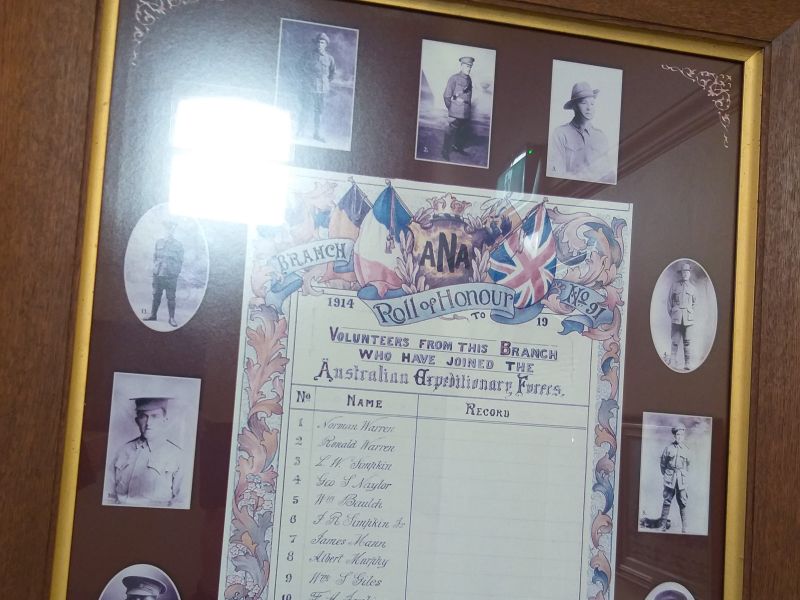 BRANCH
ANA
No. 91
1914
Roll of Honour
TO
19
VOLUNTEERS FROM THIS BRANCH
WHO HAVE JOINED THE
Australian Expeditionary Forces.
No NAME RECORD
1 Norman Warren
2 Ronald Warren
3 L. W. Simpkin
4 Geo S Naylor
5 Wm Baulch
6 F R Simpkin Jr
7 James Mann
8 Albert Murphy
9 Wm S Giles
10
2.
3.